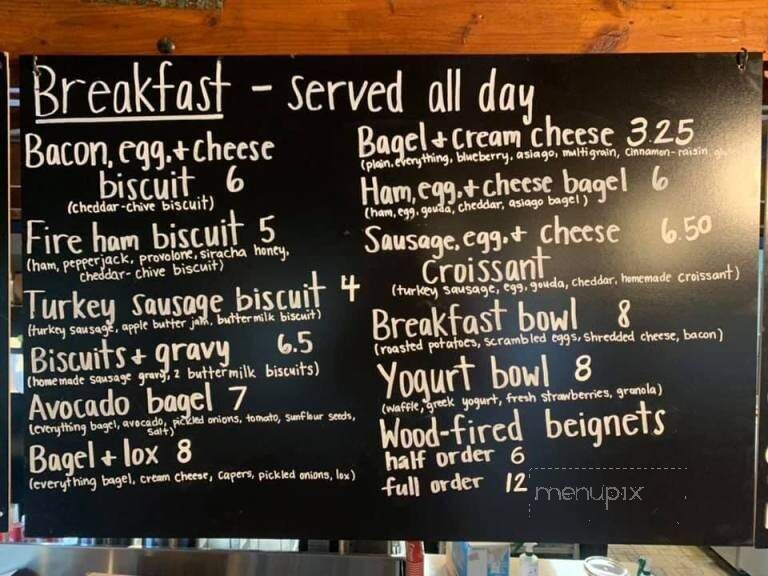 Breakfast - served all day
Bacon, egg, + cheese
biscuit 6
(cheddar-chive biscuit)
Fire ham biscuit 5
(ham, pepperjack, provolone, siracha honey,
cheddar-chive biscuit)
Turkey sausage biscuit 4
(turkey sausage, apple butter jam, buttermilk biscuit)
Biscuits + gravy 6.5
(homemade sausage gravy, 2 buttermilk biscuits)
Avocado bagel 7
(everything bagel, avocado, pickled onions, tomato, sunflour seeds,
salt)
Bagel + lox 8
(everything bagel, cream cheese, capers, pickled onions, lox)
Bagel + cream cheese 3.25
(plain, everything, blueberry, asiago, multigrain, cinnamon-raisin
Ham, egg, + cheese bagel 6
(ham, egg, gouda, cheddar, asiago bagel)
Sausage, egg, + cheese 6.50
croissant
(turkey sausage, egg, gouda, cheddar, homemade croissant)
Breakfast bowl 8
(roasted potatoes, scrambled eggs, shredded cheese, bacon)
Yogurt bowl 8
(waffle, greek yogurt, fresh strawberries, granola)
Wood-fired beignets
half order 6
full order 12
menupix